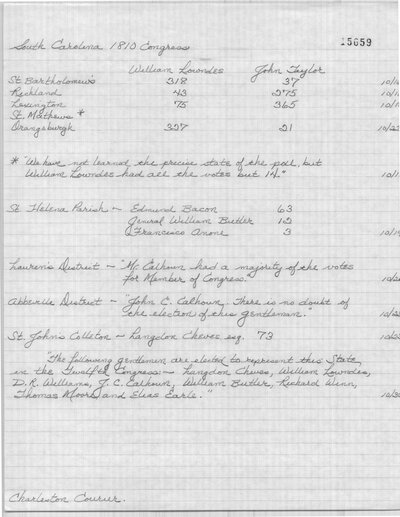 South Carolina 1810 Congress
15659
William Lowndes John Taylor
St. Bartholomew's 318 37
Richland 43 275
Lexington 75 365
St. Mathews *
Orangsburgh 327 21
* "We have not learned the precise state of the poll, but
William Lowndes had all the votes but 14."
St Helena Parish - Edmund Bacon 63
General William Butler 12
Francisco Anone 3
Lauren's District - "Mr. Calhoun had a majority of the votes
for Member of Congress."
Abbeville District - "John C. Calhoun. There is no doubt of
the election of this gentleman."
St. John's Colleton - Langdon Cheves esq. 73
"The following gentlemen are elected to represent this State
in the Twelfth Congress: - Langdon Cheves, William Lowndes,
D.R. Williams, J.C. Calhoun, William Butler, Richard Winn,
Thomas Moore and Elias Earle."
Charleston Courier.